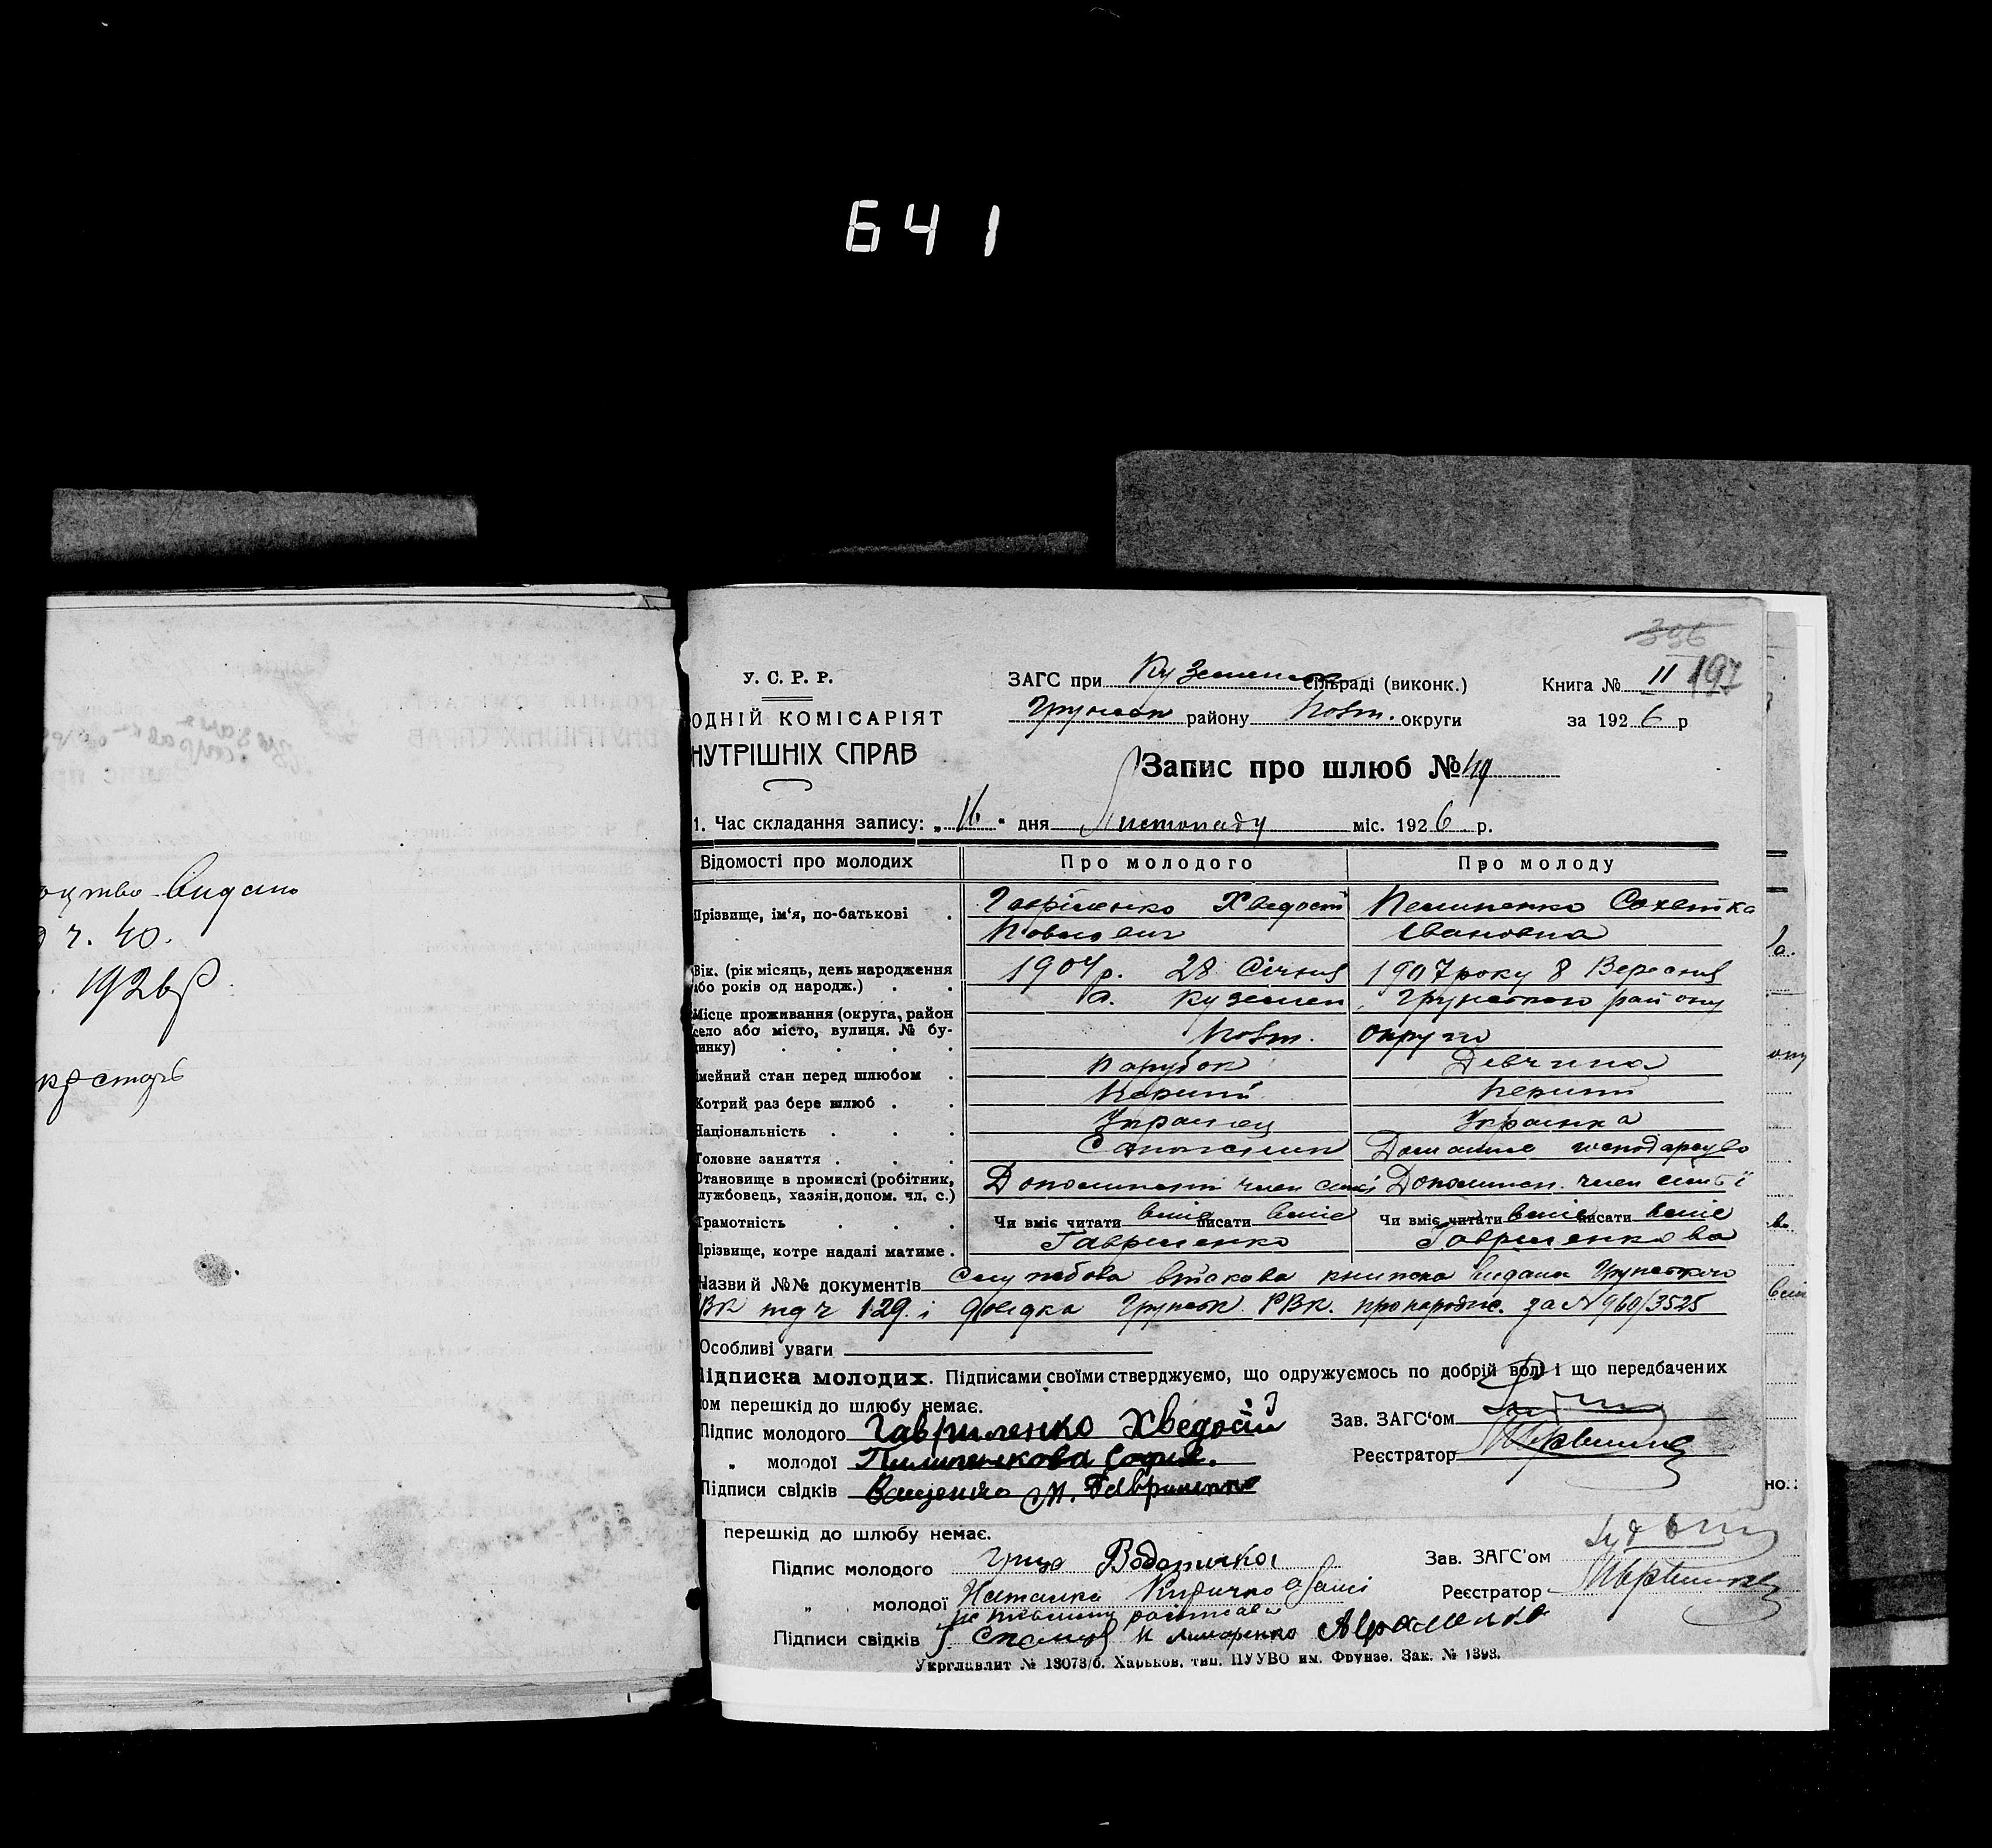 641
оцтво видано
ч. 40.
1926 р.
396
У. С. Р. Р.
ЗАГС при Куземен сільраді (виконк.)
Книга № II 197
ОДНІЙ КОМІСАРІЯТ
Грунськ району Полт. округи
за 1926 р
НУТРІШНІХ СПРАВ
Запис про шлюб № 49
1. Час складання запису: „16“ дня Листопаду міс. 1926 р.
Відомості про молодих
Про молодого
Про молоду
Прізвище, ім'я, по-батькові .
Гавріленко Хведосій
Павлович
Пелипенко
Івановна
Вік. (рік місяць, день народження
або років од народж.) . .
1904 р. 28 Січня
1907 року 8 Вересня
Місце проживання (округа, район
село або місто, вулиця. № бу-
динку) . . . .
с. Куземен, Грунського району
Полт. округи
імейний стан перед шлюбом .
Парубок
Девчина
Котрий раз бере шлюб . .
Перший
Перший
Національність . . .
Українец
Українка
Головне заняття . . .
Домашнє господарство
Становище в промислі (робітник,
лужбовець, хазяін, допом. чл. с.)
Допоминаючий член сем'ї
Допоминач. член сем'ї
Грамотність . . .
Чи вміє читати вміє писати вміє
Чи вміє читати вміє писати вміє
Прізвище, котре надалі матиме .
Гавриленко
Гавриленкова
Назви й №№ документів Служебова військова книжка видана Грунського
РВК під ч 129. і довідка Грунськ. РВК. про народж. за № 960/3525
Особливі уваги
Підписка молодих. Підписами своїми стверджуємо, що одружуємось по добрій волі і що передбачених
ом перешкід до шлюбу немає.
Підпис молодого Гавриленко Хведосій
Зав. ЗАГС'ом
„ молодої Пилипенкова Софія.
Реєстратор
Підписи свідків Ващенко М. Гавриленко
перешкід до шлюбу немає.
Підпис молодого Гриць
Зав. ЗАГС'ом
„ молодої Наталка
Реєстратор
Підписи свідків
Укрглавлит № 13073/б. Харьков, тип. ЦУУВО им. Фрунзе. Зак. № 1393.